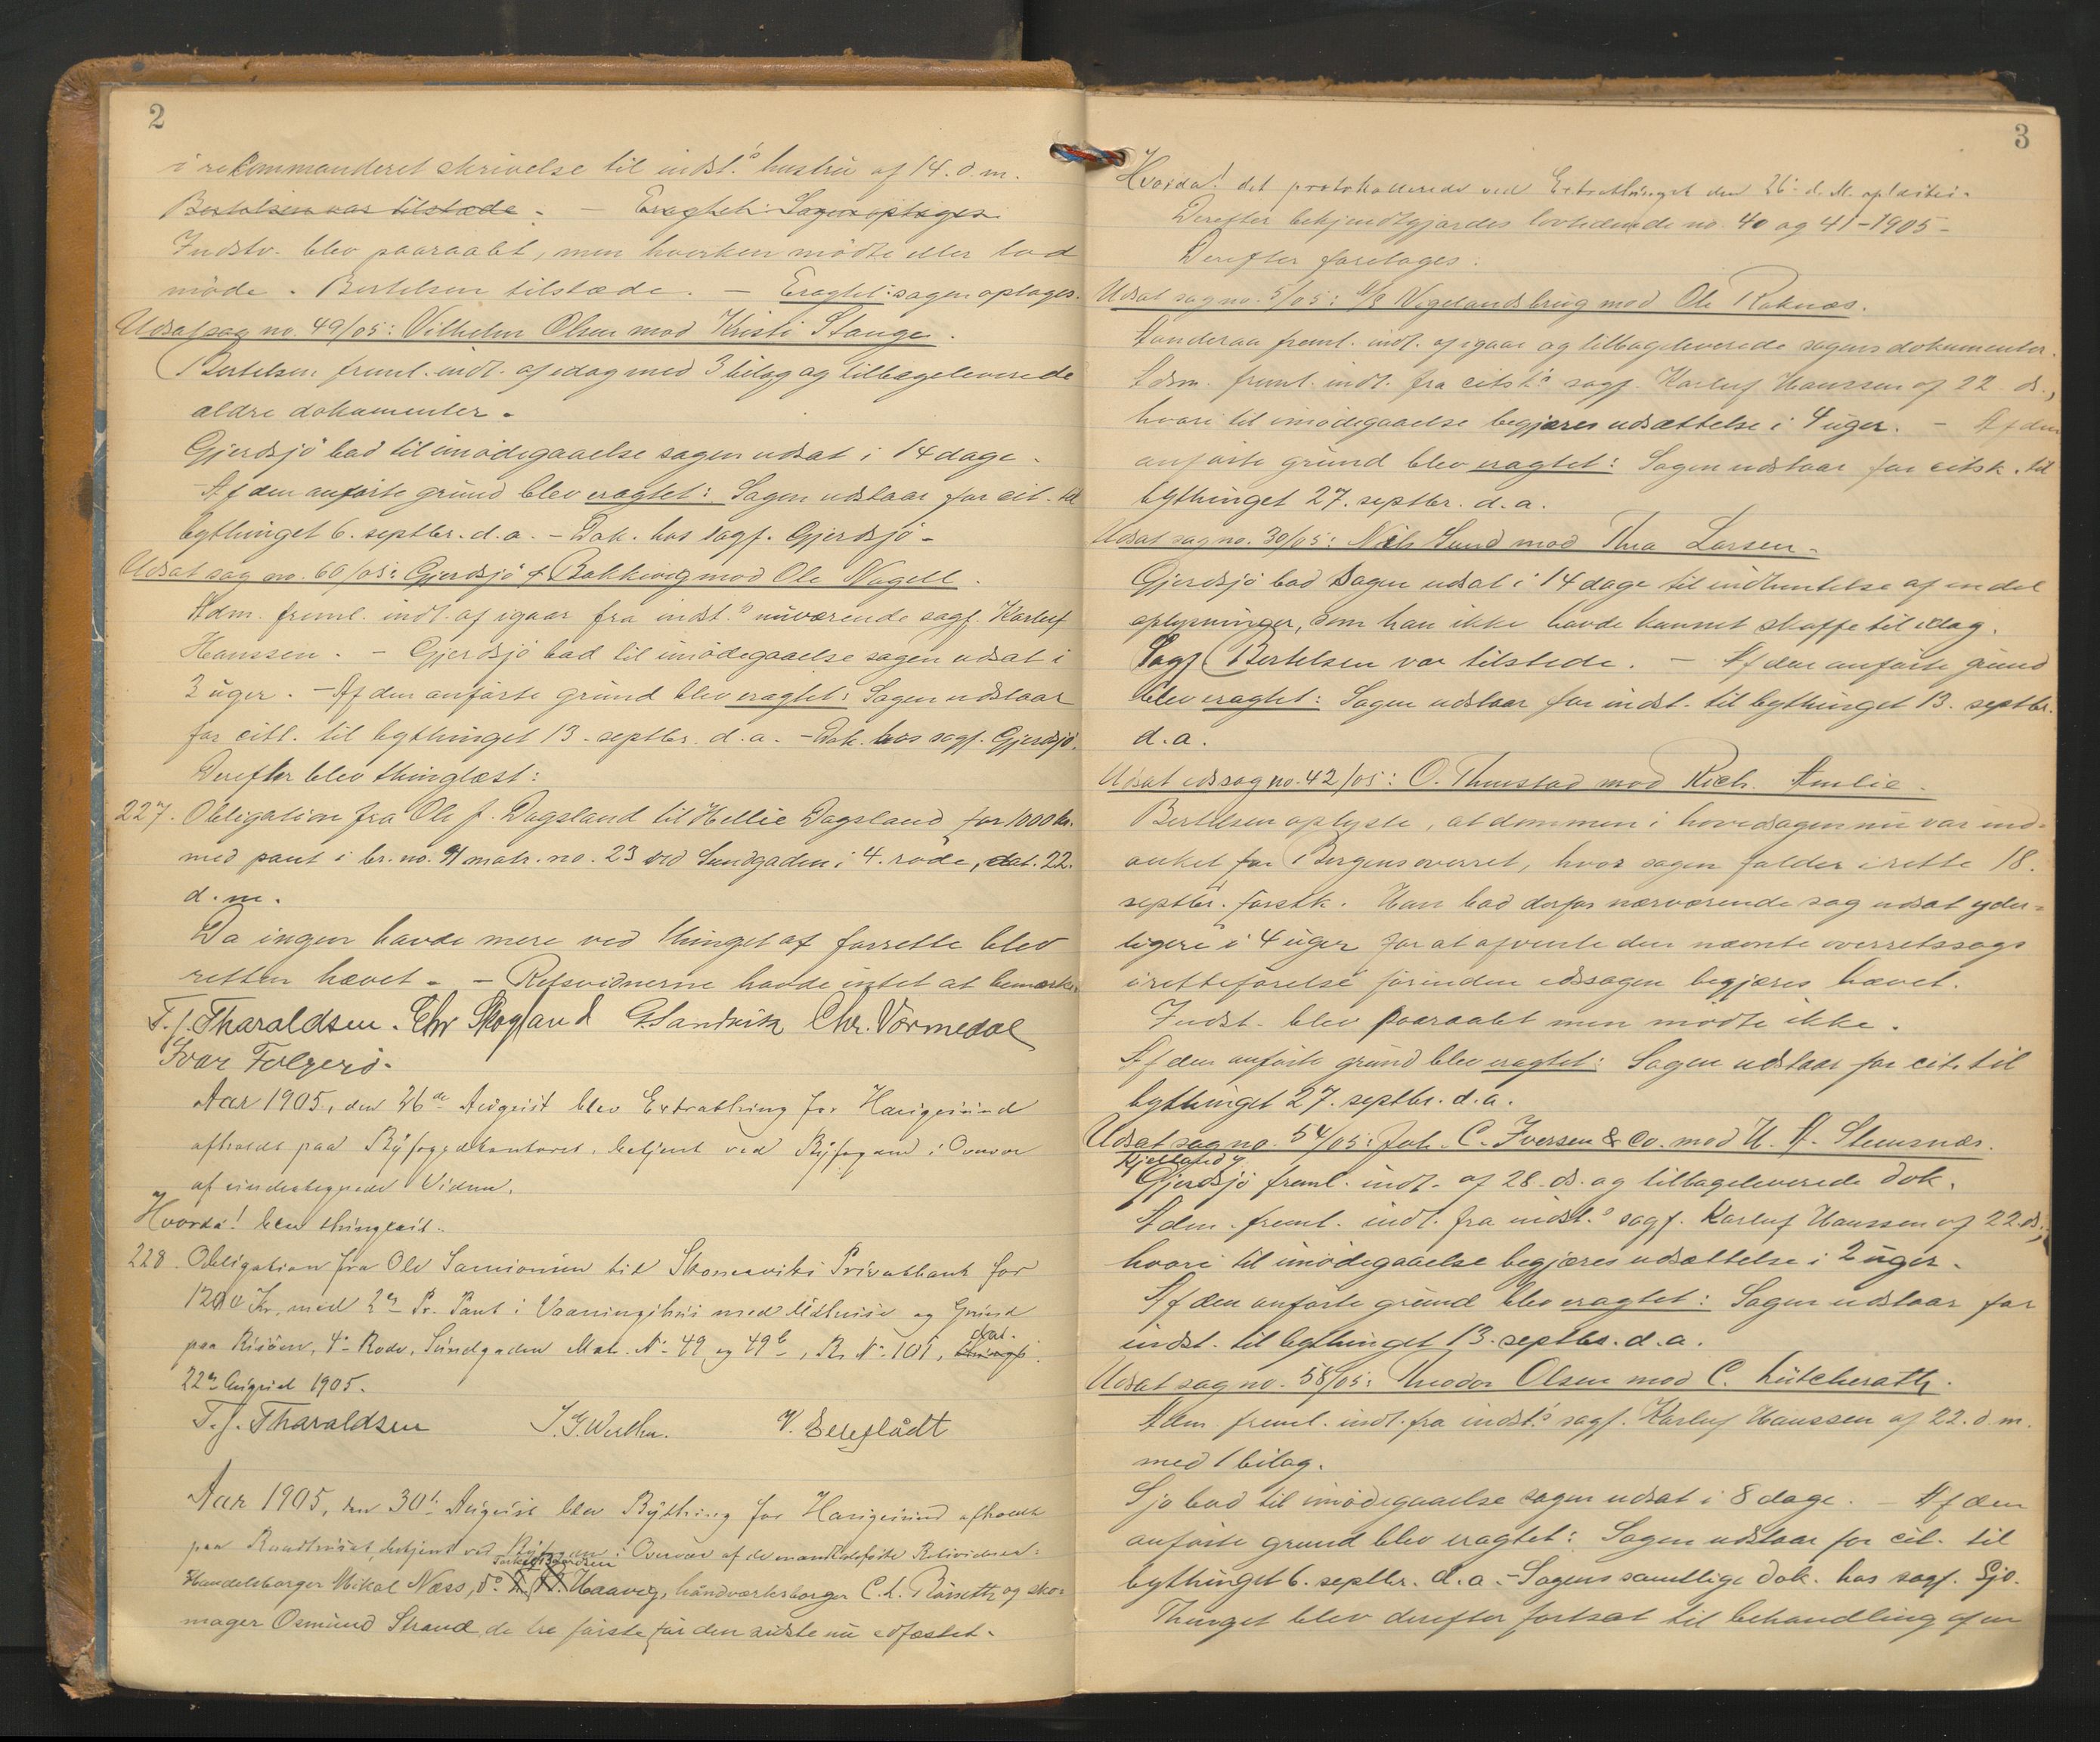 2
i rekommanderet skrivelse til indst.s hustru af 14. d.m.
Bertelsen var tilstede. - Eragtet: Sagen optages.
Indstv. blev paaraabt, men hverken mødte eller lod
møde. Bertelsen tilstede. - Eragtet: sagen optages.
Udsat sag no. 49/05: Vilhelm Olsen mod Kristi Stange.
Bertelsen freml. indl. af idag med 3 bilag og tilbageleverede
ældre dokumenter.
Gjerdsjø bad til imødegaaelse sagen udsat i 14 dage.
Af den anførte grund blev eragtet: Sagen udstaar for cit. til
bythinget 6. septbr. d.a. - Dok. hos sagf. Gjerdsjø -
Udsat sag no. 60/05: Gjerdsjø & Bakkevig mod Ole Nagell.
Adm. freml. indl. af igaar fra indst.s nuværende sagf. Karluf
Hanssen. - Gjerdsjø bad til imødegaaelse sagen udsat i
2 uger. - Af den anførte grund blev eragtet: Sagen udstaar
for citt. til bythinget 13. septbr. d.a. - Dok. hos sagf. Gjerdsjø.
Derefter blev thinglæst:
227. Obligation fra Ole J. Dagsland til Hellie Dagsland for 1000 kr.
med pant i br. no. 91 matr. no. 23 ved Sundgaden i 4. rode, dat. 22.
d.m.
Da ingen havde mere ved thinget at forrette blev
retten hævet. - Retsvidnerne havde intet at bemærke.
T. J. Tharaldsen. Chr Skogland G Sandvik Chr. Vormedal
Ivar Folgerø.
Aar 1905, den 26de August blev Extrathing for Haugesund
afholdt paa Byfogedkontoret, betjent ved Byfogden i Overvær
af undertegnede Vidner.
Hvorda! blev thinglæst:
228. Obligation fra Ole Samionsen til Skonevik Privatbank for
1200 Kr. med 2en Pr. Pant i Vaaningshus med Udhuse og Grund
paa Risøen, 4e Rode, Sundgaden Mat. No 49 og 49b, Br. No 101, thingl. dat.
22en August 1905.
T. J. Tharaldsen
Aar 1905, den 30te August blev Bything for Haugesund afholdt
paa Raadhuset, betjent ved Byfogden i Overvær af de mandtalsførte Retsvidner:
Handelsborger Mikal Næss, do Haavig, haandværksborger C. L. Røsseth og sko-
mager Osmund Strand, de tre første før den sidste nu edfæstet.
3
Hvorda! det protokollerede ved Extrathinget den 26e d. M. oplæstes.
Derefter bekjendtgjordes lovtidende no. 40 og 41 - 1905 -
Derefter foretoges:
Udsat sag no. 5/05: A/S Vigelands brug mod Ole Raknæs.
Sunderaa freml. indl. af igaar og tilbageleverede sagens dokumenter.
Adm. freml. indl. fra citst.s sagf. Karluf Hanssen af 22 ds.,
hvori til imødegaaelse begjæres udsættelse i 4 uger. - Af den
anførte grund blev eragtet: Sagen udstaar for citsk. til
bythinget 27. septbr. d.a.
Udsat sag no. 30/05: Nils Sund mod Thea Larsen.
Gjerdsjø bad sagen udsat i 14 dage til indhentelse af endel
oplysninger, som han ikke havde kunnet skaffe til idag.
Sagf Bertelsen var tilstede. - Af den anførte grund
blev eragtet: Sagen udstaar for indst. til bythinget 13. septbr.
d.a.
Udsat edssag no. 42/05: O. Thuestad mod Rich. Amlie.
Bertelsen oplyste, at dommen i hovedsagen nu var ind-
anket for Bergens overret, hvor sagen falder i rette 18.
septbr. førstk. Han bad derfor nærværende sag udsat yder-
ligere i 4 uger for at afvente den nævnte overretssags
iretteførelse førinden edssagen begjæres hævet.
Indst. blev paaraabt men mødte ikke.
Af den anførte grund blev eragtet: Sagen udstaar for cit. til
bythinget 27. septbr. d.a.
Udsat sag no. 54/05: Joh. C. Iversen & Co. mod H. A. Stensnæs.
Kjelland
Gjerdsjø freml. indl. af 28. ds. og tilbageleverede dok.
Adm. freml. indl. fra indst.s sagf. Karluf Hanssen af 22. ds.,
hvori til imødegaaelse begjæres udsættelse i 2 uger.
Af den anførte grund blev eragtet: Sagen udstaar for
indst. til bythinget 13. septbr. d.a.
Udsat sag no. 58/05: Theodor Olsen mod C. Lütcherath.
Adm. freml. indl. fra indst.s sagf. Karluf Hanssen af 22. d.m.
med 1 bilag.
Sjo bad til imødegaaelse sagen udsat i 8 dage. - Af den
anførte grund blev eragtet: Sagen udstaar for cit. til
bythinget 6. septbr. d.a. - Sagens samtlige dok. hos sagf. Sjo.
Thinget blev derefter fortsat til behandling af en